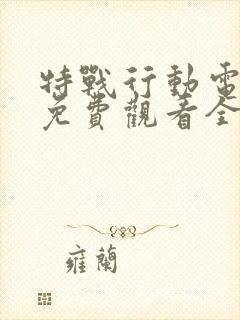 特戰行動電
免費觀看全
雍蘭